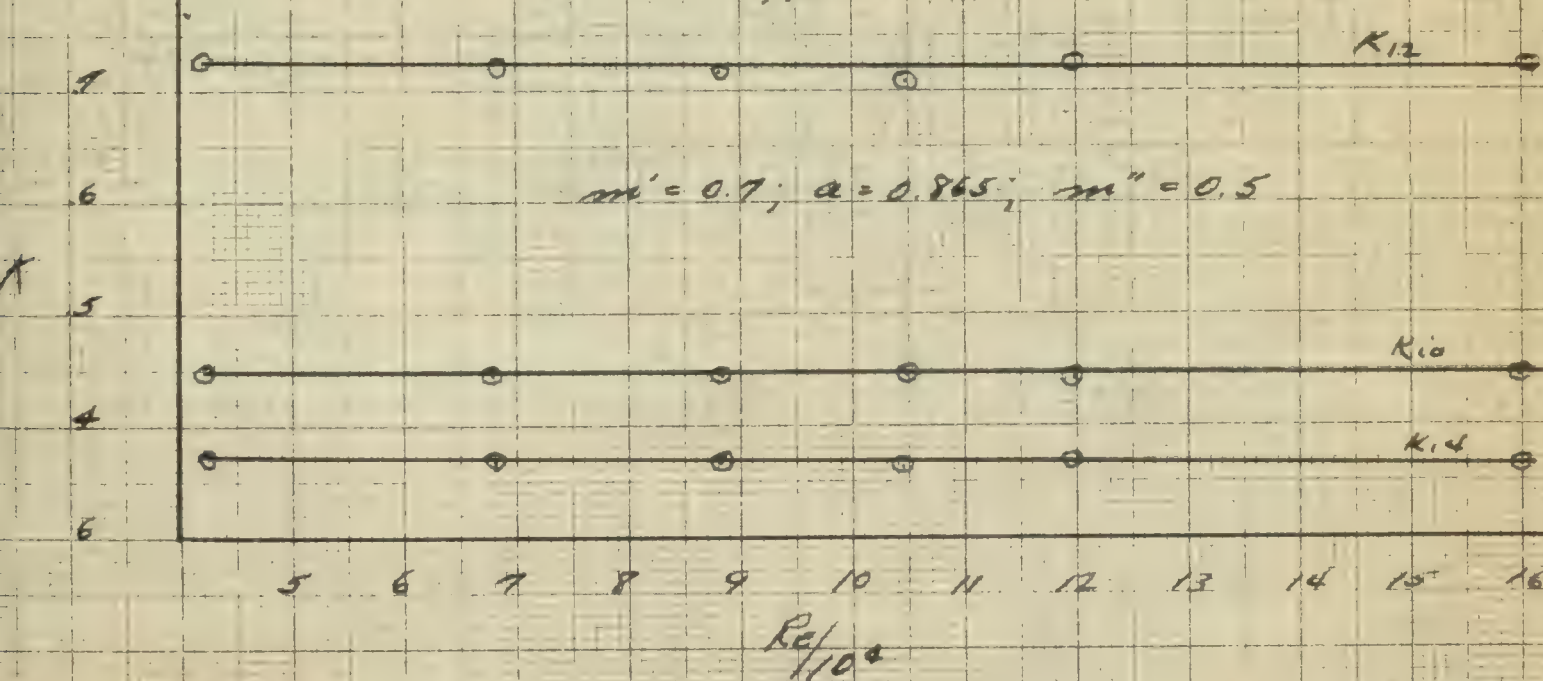 K12
.7
m' = 0.7; a = 0.865; m" = 0.5
.6
K
.5
K10
.4
K14
6
5 6 7 8 9 10 11 12 13 14 15 16
Re/10⁴